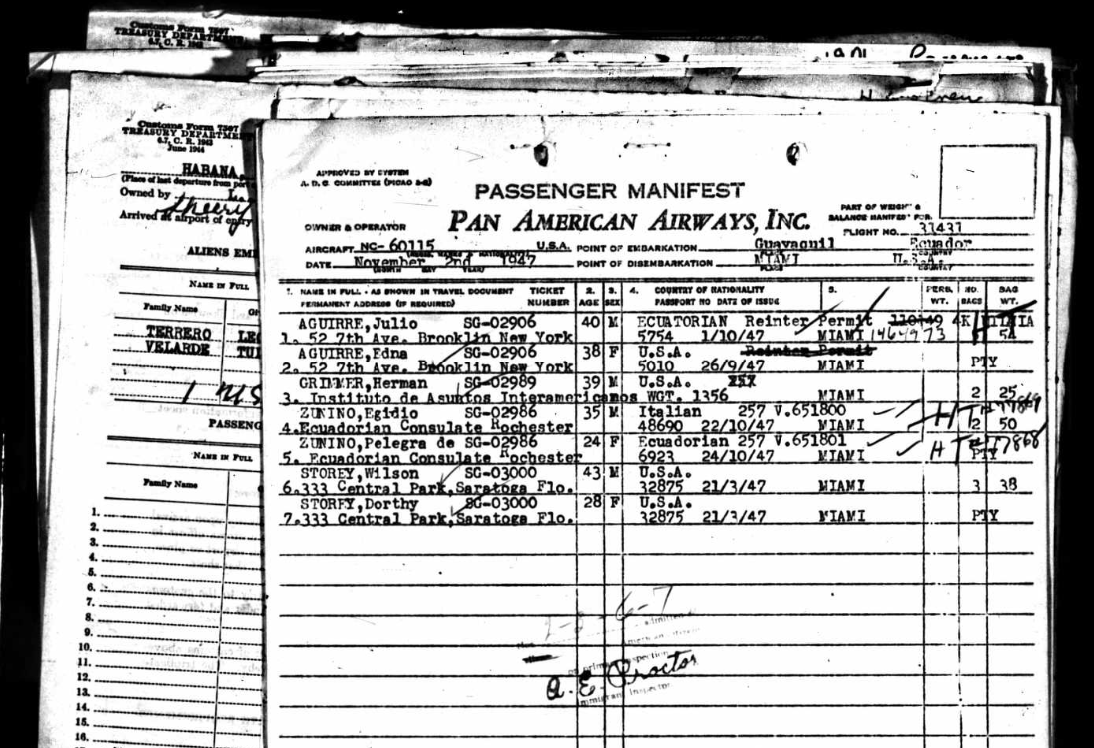 Customs Form 7507
TREASURY DEPARTMENT
Customs Form 7507
TREASURY DEPARTMENT
6.7, C. R. 1943
June 1944
HABANA
(Place of last departure from
Owned by
Arrived at airport of entry
ALIENS
NAME IN FULL
Family Name
TERRERO
VELARDE
PASSENG
NAME IN FULL
Family Name
1.
2.
3.
4.
5.
6.
7.
8.
9.
10.
11.
12.
13.
14.
15.
16.
APPROVED BY SYSTEM
A. D. C. COMMITTEE
PASSENGER MANIFEST
PAN AMERICAN AIRWAYS, INC.
PART OF WEIGHT &
BALANCE MANIFEST FOR
OWNER & OPERATOR
FLIGHT NO. 31431
AIRCRAFT NC-60115 U.S.A. POINT OF EMBARKATION Guayaquil Ecuador
DATE November 2nd 1947 POINT OF DISEMBARKATION MIAMI U.S.A.
1. NAME IN FULL - AS SHOWN IN TRAVEL DOCUMENT TICKET 2. 3. 4. COUNTRY OF NATIONALITY 5. PERS. NO. BAG
PERMANENT ADDRESS (IF REQUIRED) NUMBER AGE SEX PASSPORT NO DATE OF ISSUE WT. BAGS WT.
AGUIRRE,Julio SG-02906 40 M ECUATORIAN Reinter Permit
1. 52 7th Ave. Brooklin New York 5754 1/10/47 MIAMI 1464973 54
AGUIRRE,Edna SG-02906 38 F U.S.A. Reinter Permit
2. 52 7th Ave. Brooklin New York 5010 26/9/47 MIAMI PTY
GRIMMER,Herman SG-02989 39 M U.S.A.
3. Instituto de Asuntos Interamericanos WGT. 1356 MIAMI 2 25
ZUNINO,Egidio SG-02986 35 M Italian 257 V.651800
4.Ecuadorian Consulate Rochester 48690 22/10/47 MIAMI 2 50
ZUNINO,Pelegra de SG-02986 24 F Ecuadorian 257 V.651801
5. Ecuadorian Consulate Rochester 6923 24/10/47 MIAMI PTY
STOREY,Wilson SG-03000 43 M U.S.A.
6.333 Central Park,Saratoga Flo. 32875 21/3/47 MIAMI 3 38
STOREY,Dorthy SG-03000 28 F U.S.A.
7.333 Central Park,Saratoga Flo. 32875 21/3/47 MIAMI PTY
A. E. Proctor